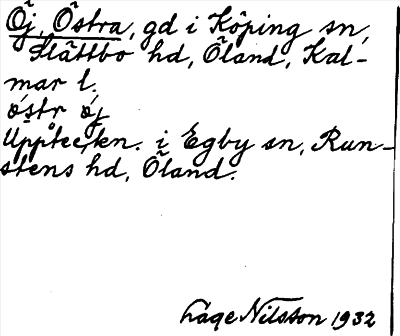 Öj, Östra, gd i Köping sn,
Slättbo hd, Öland, Kal-
mar l.
östr öj
Uppteckn. i Egby sn, Run-
stens hd, Öland.
Låge Nilsson 1932